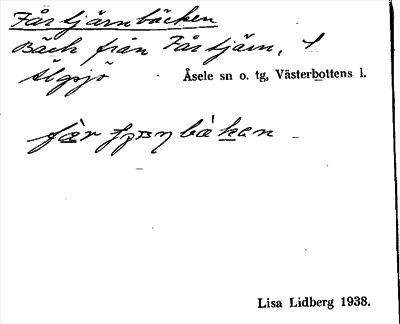 Fårtjärnbäcken
Bäck från Fårtjärn, 1
Älgsjö Åsele sn o. tg, Västerbottens l.
bäken
Lisa Lidberg 1938.